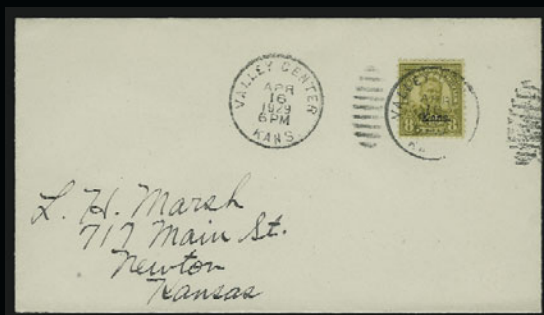 VALLEY CENTER
APR
16
1929
6 PM
KANS.
VALLEY
Kans.
8 8
L. H. Marsh
717 Main St.
Newton
Kansas